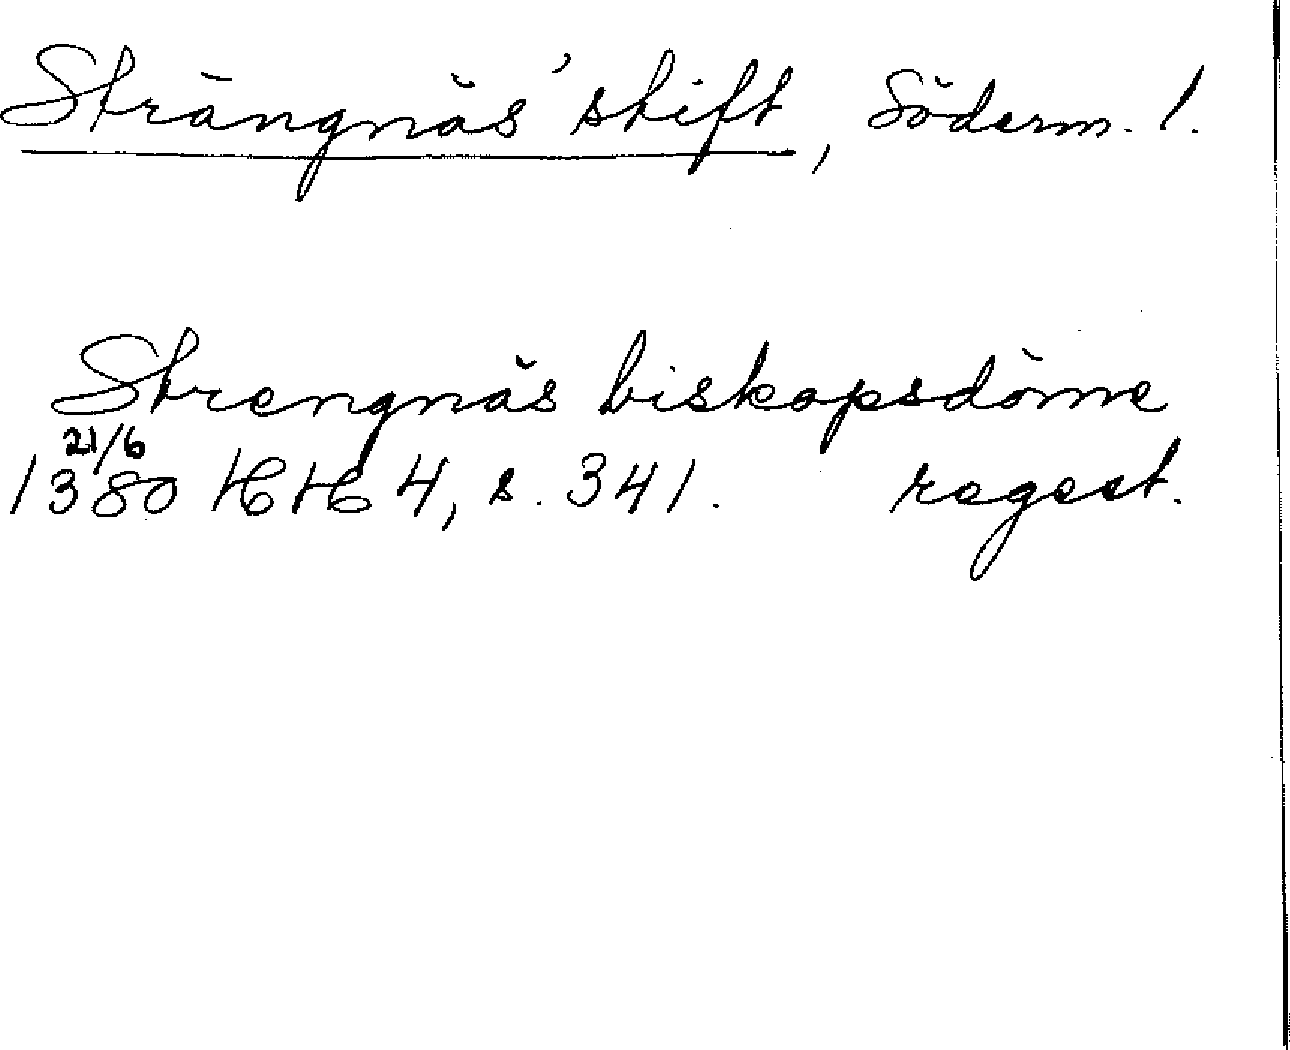 Strängnäs' stift, Söderm. l.
Strengnäs biskopsdöme
21/6
1380 HH 4, s. 341. regest.